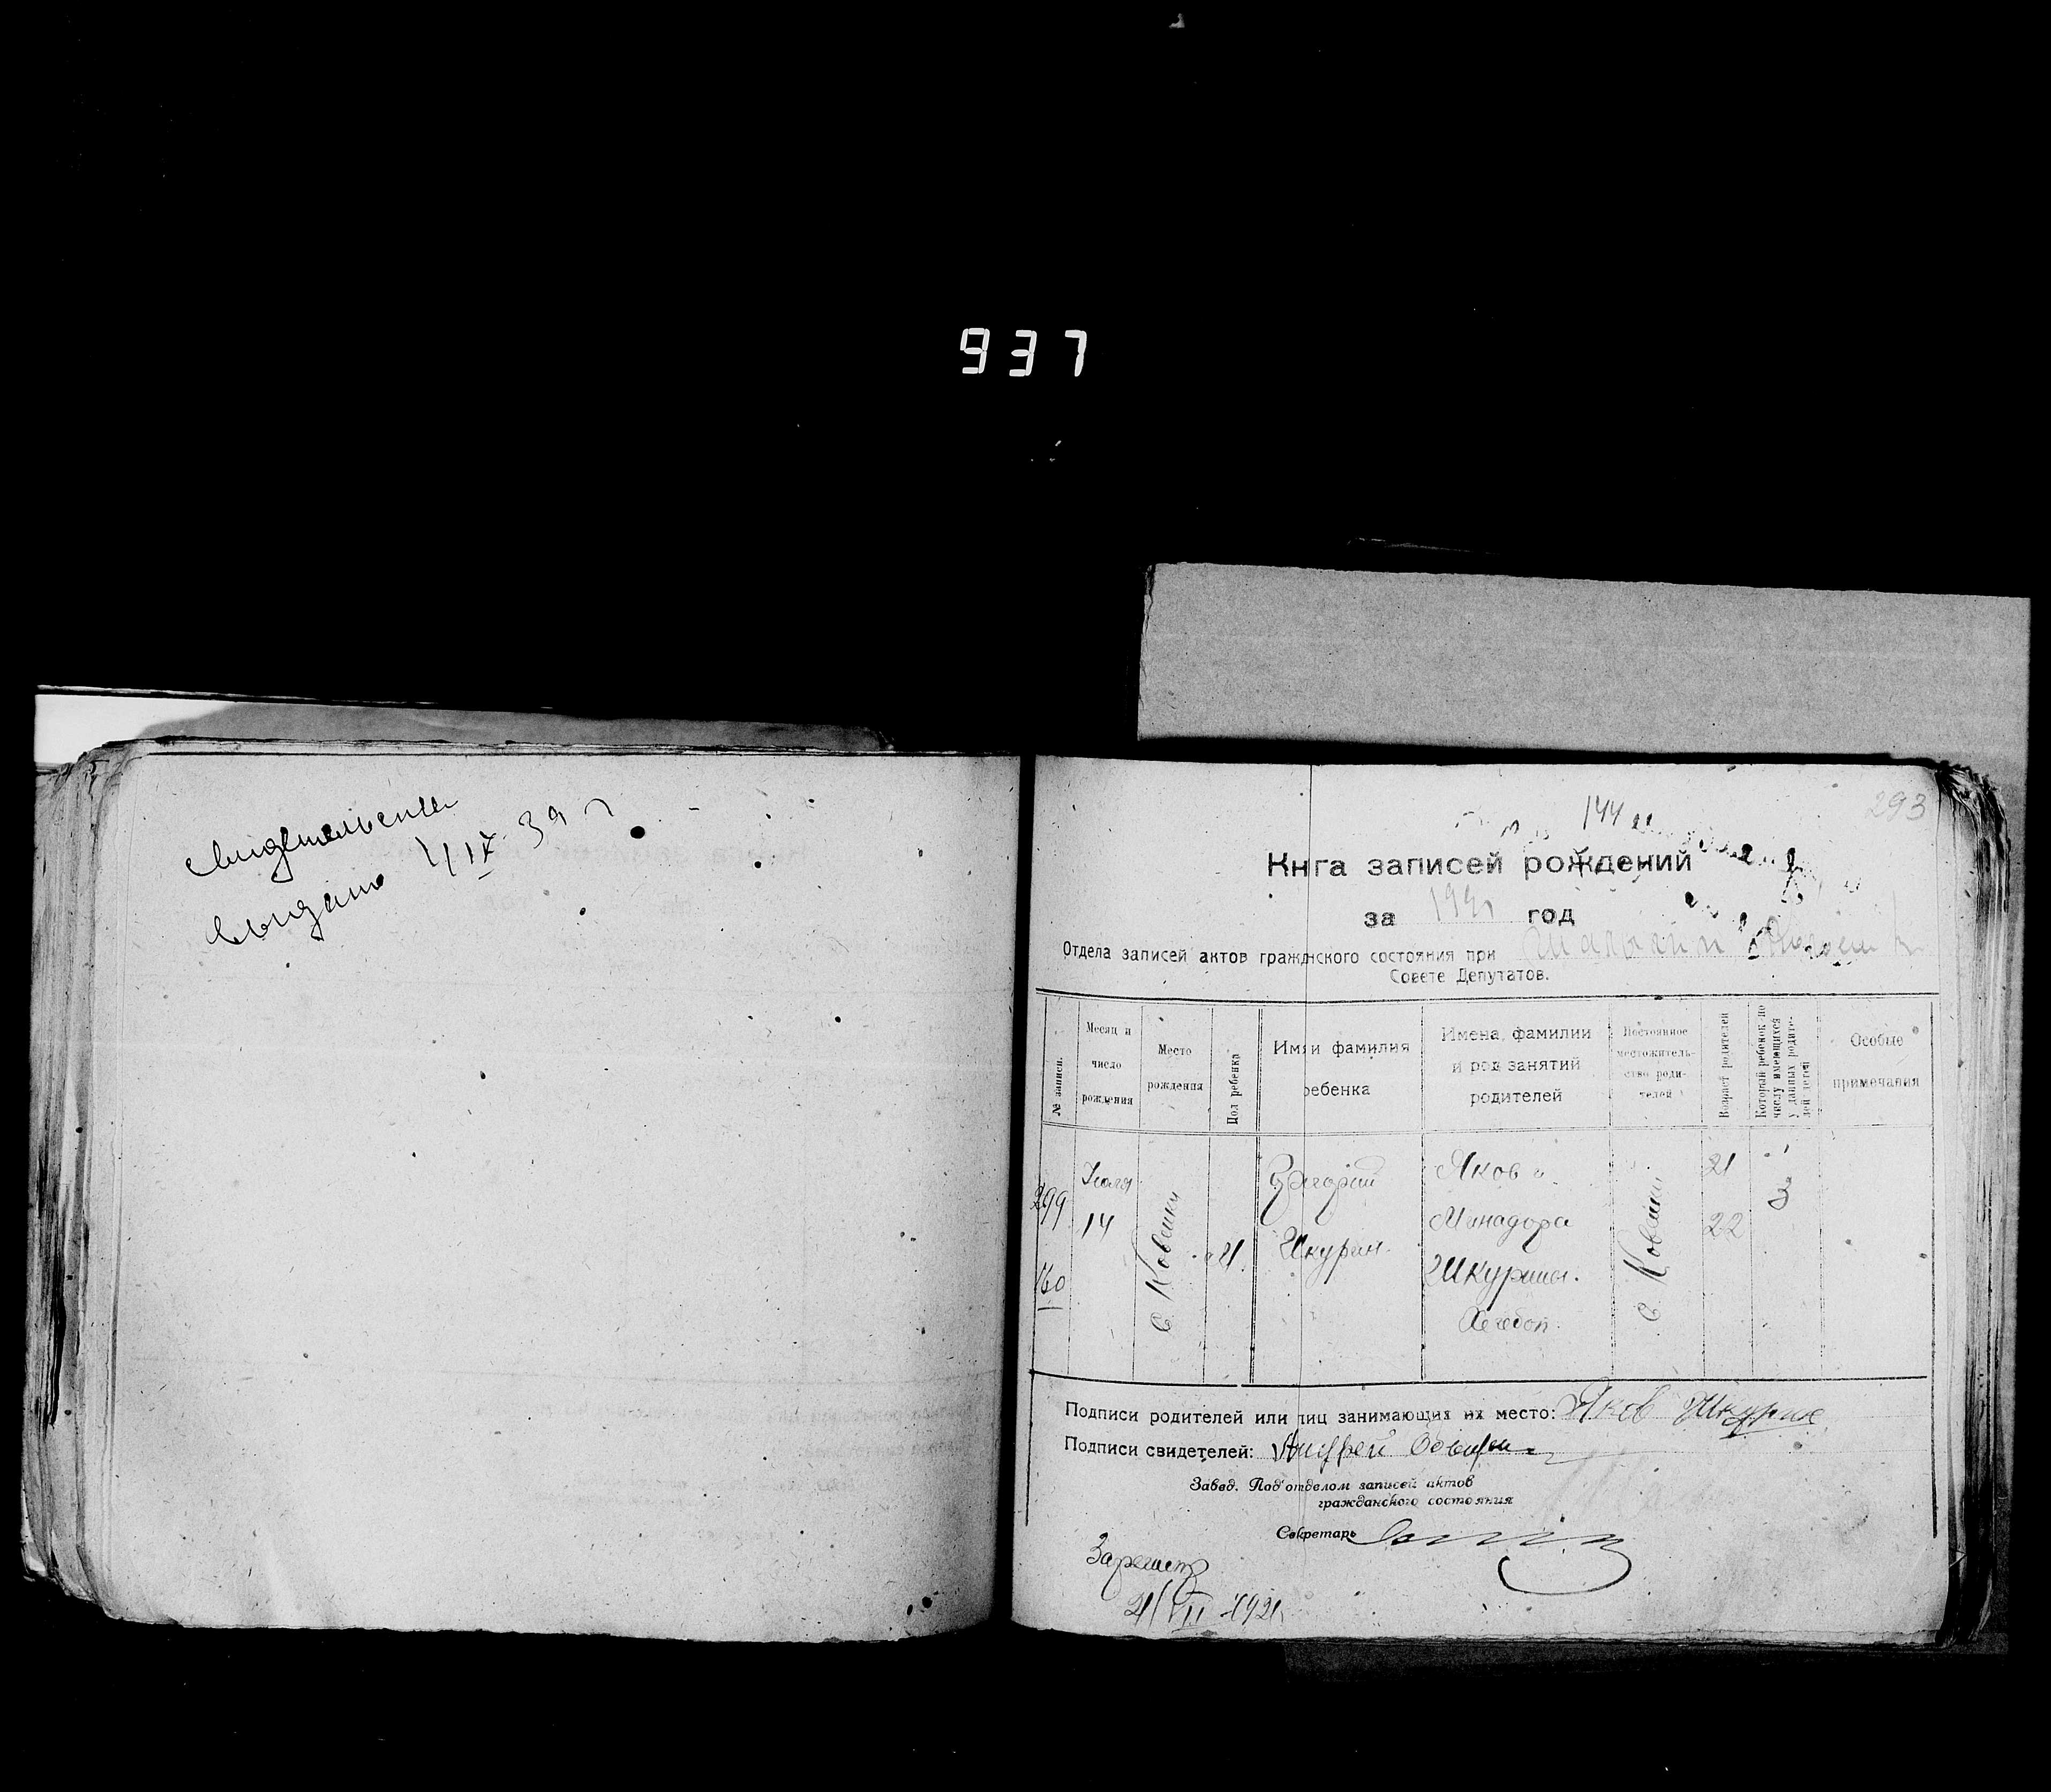 937
Свидетельств
выдано 4 IX 39 г
293
144
Книга записей рождений
за 1921 год
Отдела записей актов гражданского состояния при
Совете Депутатов.
№ записи.
Месяц и
число
рождения
Место
рождения
Пол ребенка
Имя и фамилия
ребенка
Имена, фамилии
и род занятий
родителей
Постоянное
местожитель-
ство роди-
телей
Возраст родителей
Который ребенок по
числу имеющихся
у данных родите-
лей детей
Особые
примечания
299
160
Июля
14
с. Ковешни
М.
Григорий
Шкурин.
Яков и
Минадора
Шкурины.
Хлебоп.
21
22
3
Подписи родителей или лиц занимающих их место: Яков Шкурин
Подписи свидетелей: Андрей
Завед. Под'отделом записей актов
гражданского состояния
Секретарь
Зарегист
21/VII 1921